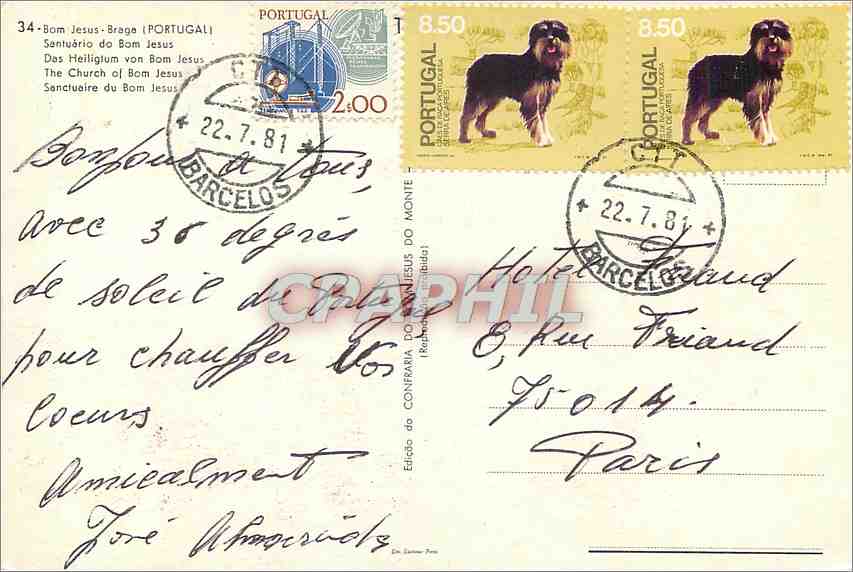 34-Bom Jesus-Braga (PORTUGAL)
Santuário do Bom Jesus
Das Heiligtum von Bom Jesus
The Church of Bom Jesus
Sanctuaire du Bom Jesus
PORTUGAL
2:00
8.50
PORTUGAL
CÃES DE RAÇA PORTUGUESA
SERRA DE AIRES
8.50
PORTUGAL
CÃES DE RAÇA PORTUGUESA
SERRA DE AIRES
CTT
22.7.81
BARCELOS
CTT
22.7.81
BARCELOS
Bonjour a tous,
avec 38 degrés
de soleil du Portugal
pour chauffer vos
coeurs.
Amicalment
José
Edição da CONFRARIA DO BOM JESUS DO MONTE
(Reprodução proibida)
Hotel Friand
8, Rue Friand
75014.
Paris
CPAPHIL